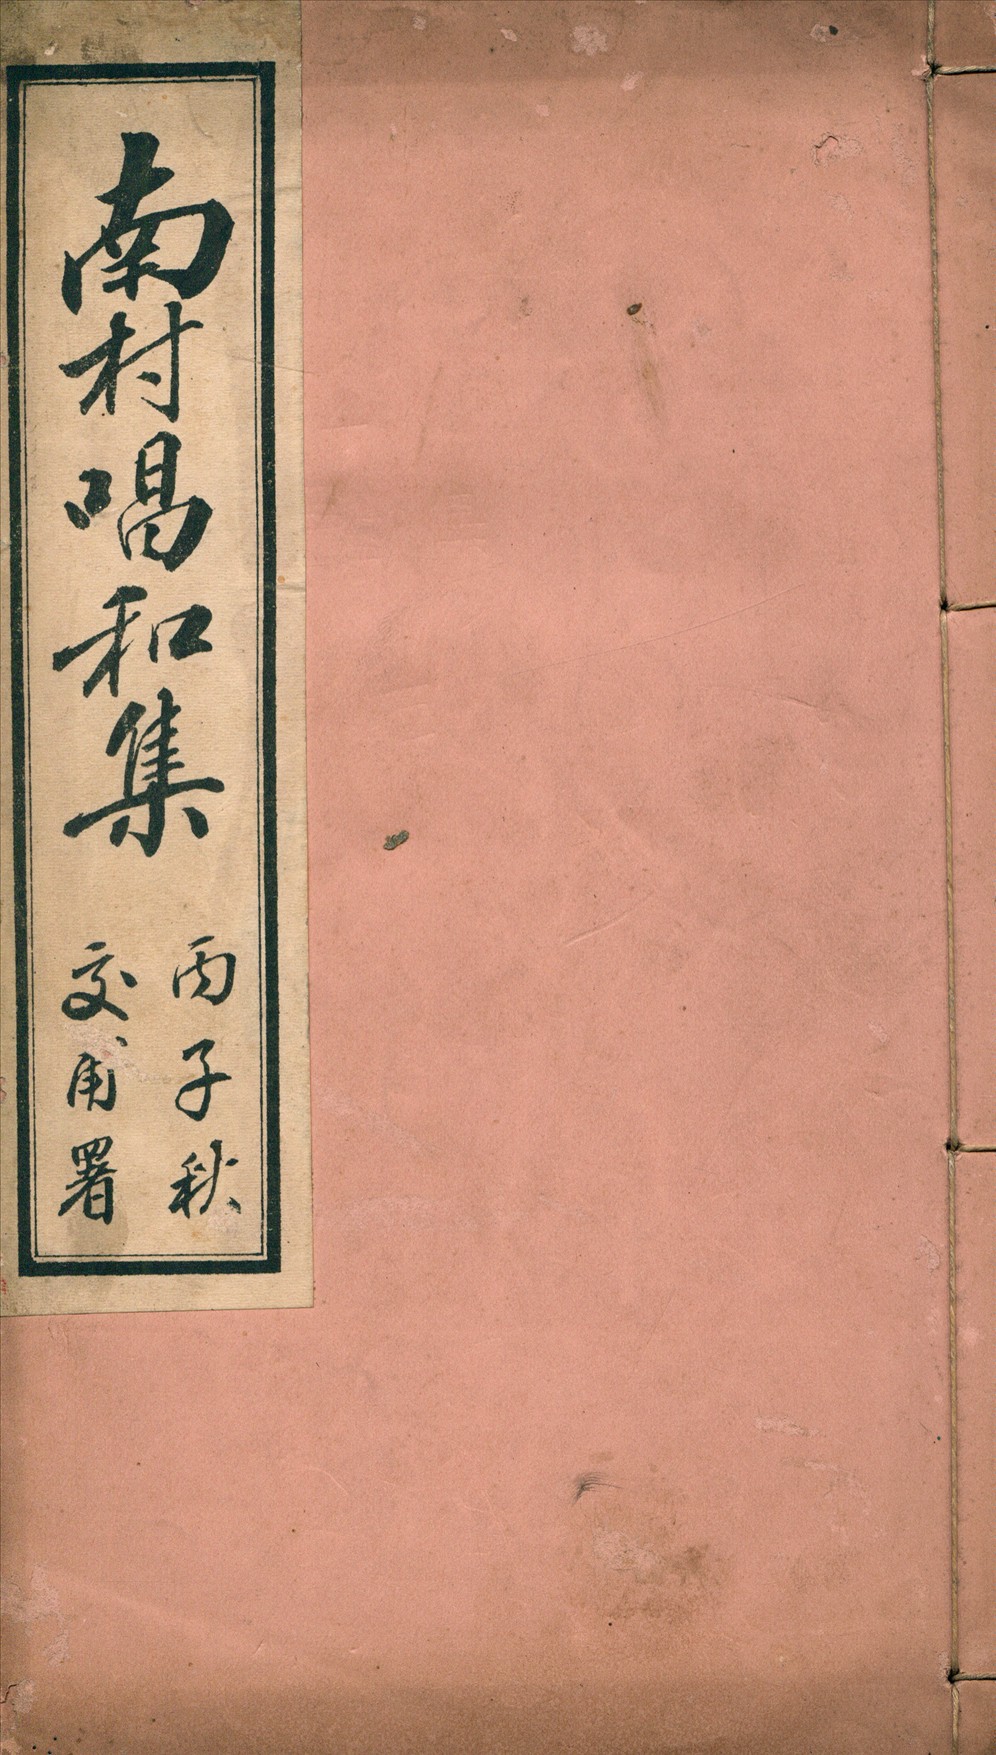 南村唱和集
丙子秋
交甫署